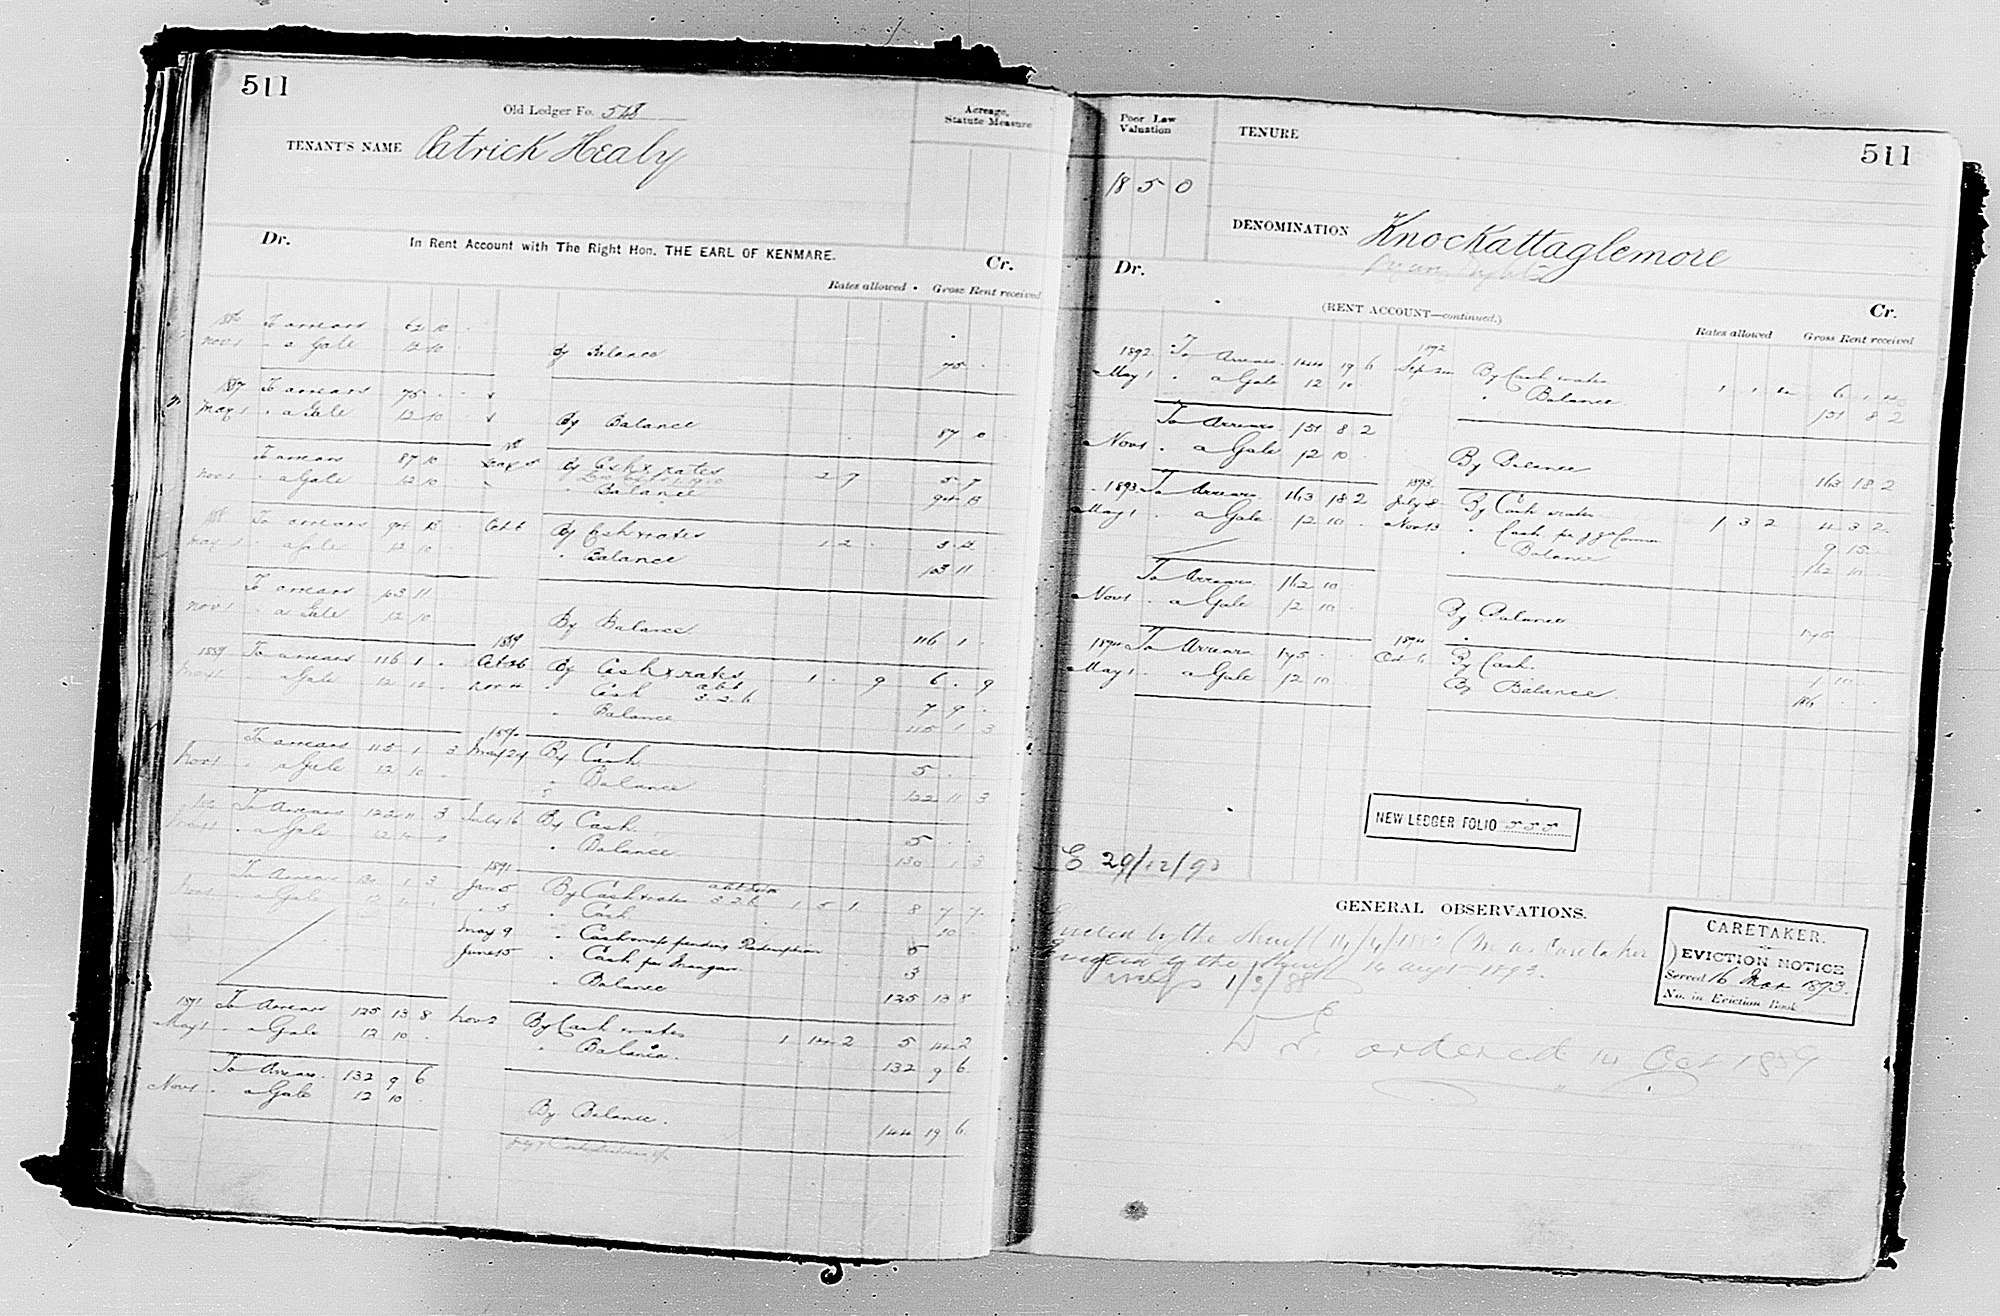 511
Old Ledger Fo. 548
Acreage,
Statute Measure
TENANT'S NAME Patrick Healy
Dr. In Rent Account with The Right Hon. THE EARL OF KENMARE. Cr.
Rates allowed Gross Rent received
1886 To arrears 62 10
Nov 1 " a Gale 12 10 By Balance 75
1887 To arrears 75
May 1 " a Gale 12 10 By Balance 87 10
To arrears 87 10 By Cash & rates 2 7 5 7
Nov 1 " a Gale 12 10 " Balance 94 13
188 To arrears 94 13 Oct 6 By Cash & rates 1 2 3 12
May 1 " a Gale 12 10 " Balance 103 11
To arrears 103 11
Nov 1 " a Gale 12 10 By Balance 116 1
1889
1889 To arrears 116 1 Oct 26 By Cash & rates 1 9 6 9
May 1 " a Gale 12 10 Nov " Cash 3.2.6 7 9
" Balance 115 1 3
1890
To arrears 115 1 3 May 24 By Cash 5
Nov 1 " a Gale 12 10 " Balance 122 11 3
To Arrears 122 11 3 July 16 By Cash 5
May 1 " a Gale 12 10 " Balance 130 1 3
1891
To Arrears 130 1 3 Jan 5 By Cash & rates 3.2.6 1 5 1 8 7 7
Nov 1 " a Gale 12 10 " 5 " Cash 10
May 9 " Cash pending Redemption 5
June 15 " Cash per Mangan 3
" Balance 125 13 8
1891 To Arrears 125 13 8 Nov 2 By Cash & rates 1 14 2 5 14 2
May 1 " a Gale 12 10 " Balance. 132 9 6
To Arrears 132 9 6
Nov 1 " a Gale 12 10 By Balance. 144 19 6
Poor Law
Valuation
TENURE
511
18 5 0
DENOMINATION Knockattaglemore
Dr. (RENT ACCOUNT—continued.) Cr.
Rates allowed Gross Rent received
1892
1892 To Arrears 144 19 6 Sep By Cash & rates 1 1 4 6 1 4
May 1 " a Gale 12 10 " Balance 151 8 2
To Arrears 151 8 2
Nov 1 " a Gale 12 10 By Balance 163 18 2
1893
1893 To Arrears 163 18 2 July 8 By Cash & rates 1 3 2 4 3 2
May 1 " a Gale 12 10 Nov 13 " Cash per 9 15
" Balance 162 10
To Arrears 162 10
Nov 1 " a Gale 12 10 By Balance 175
1894
1894 To Arrears 175 Oct 6 By Cash. 1 10
May 1 " a Gale 12 10 By Balance 186
NEW LEDGER FOLIO 555
E 29/12/93
GENERAL OBSERVATIONS.
by the Sheriff (In as Caretaker)
Evicted by the Sheriff 14 augt 1893.
1/3/88
CARETAKER.
EVICTION NOTICE
Served 16 Mar 1893.
No. in Eviction Book
ordered 14 Oct 1889